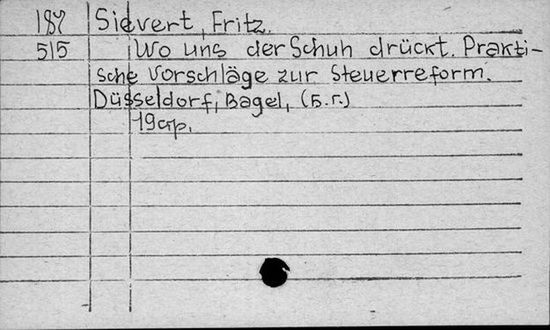 187 Sievert, Fritz.
515 Wo uns der Schuh drückt. Prakti-
sche Vorschläge zur Steuerreform.
Düsseldorf, Bagel, (Б.г.)
19 стр.